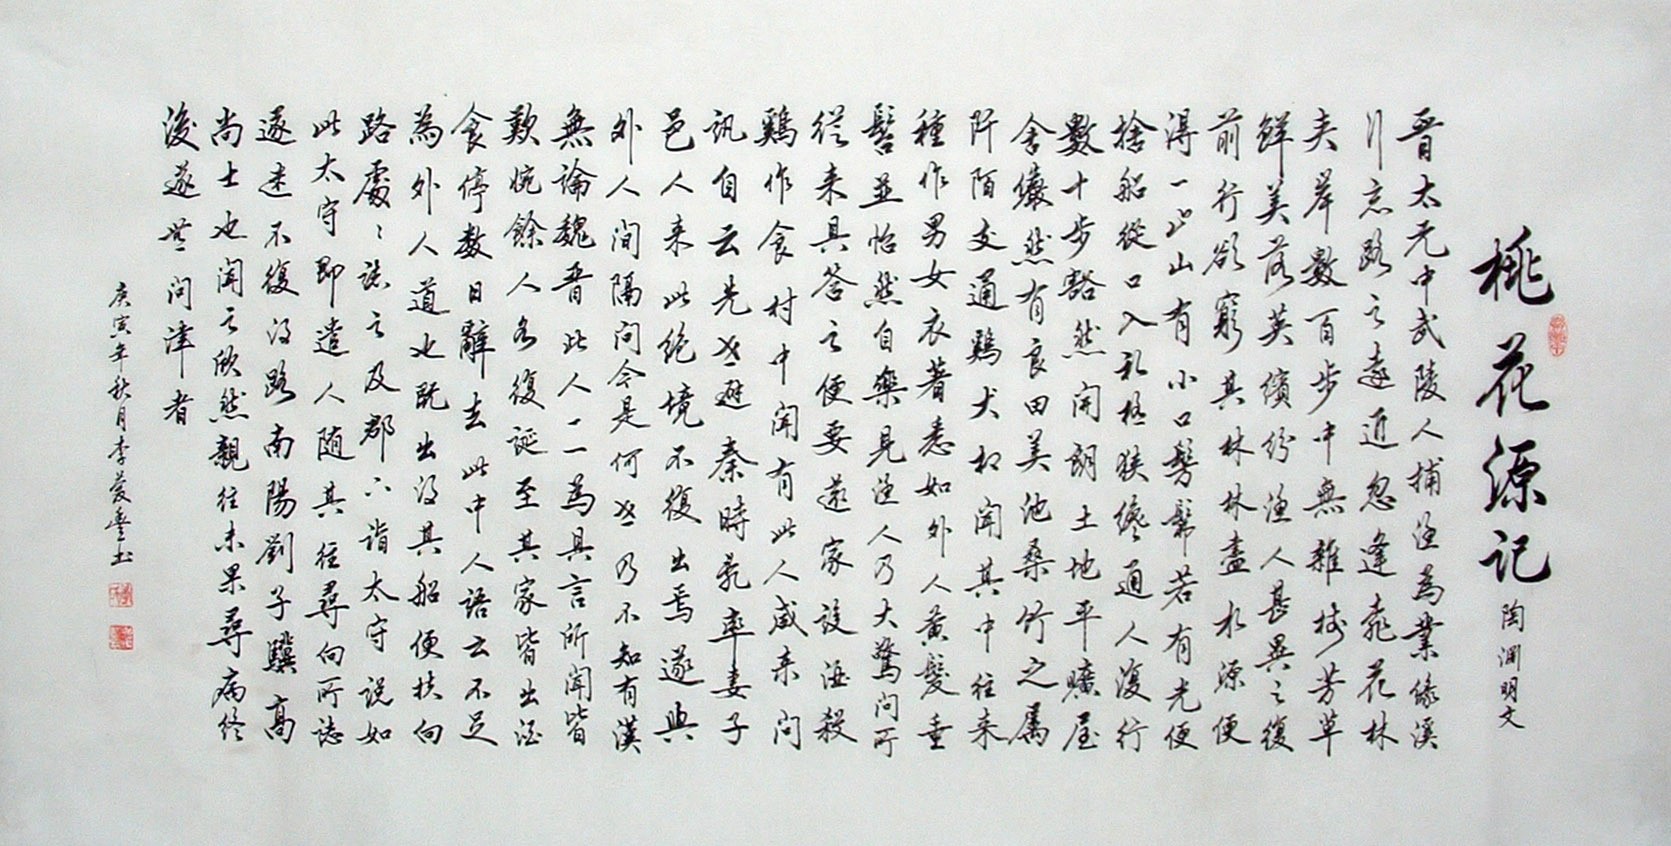 桃花源记
陶渊明文
晋太元中武陵人捕渔為業缘溪
行忘路之遠近忽逢桃花林
夹岸數百步中無雜樹芳草
鲜美落英缤纷渔人甚異之復
前行欲窮其林林盡水源便
得一山山有小口髣髴若有光便
捨船從口入初極狭纔通人復行
數十步豁然開朗土地平曠屋
舍儼然有良田美池桑竹之属
阡陌交通鷄犬相聞其中往来
種作男女衣著悉如外人黄髮垂
髫並怡然自樂見渔人乃大驚问所
從来具答之便要還家设酒殺
鷄作食村中闻有此人咸来问
訊自云先世避秦時乱率妻子
邑人来此绝境不復出焉遂與
外人间隔问今是何世乃不知有漢
無論魏晋此人一一為具言所闻皆
歎惋餘人各復延至其家皆出酒
食停数日辭去此中人語云不足
為外人道也既出得其船便扶向
路處處誌之及郡下詣太守说如
此太守即遣人随其往尋向所誌
遂迷不復得路南陽劉子驥高
尚士也闻之欣然親往未果尋病终
後遂無问津者
庚寅年秋月李